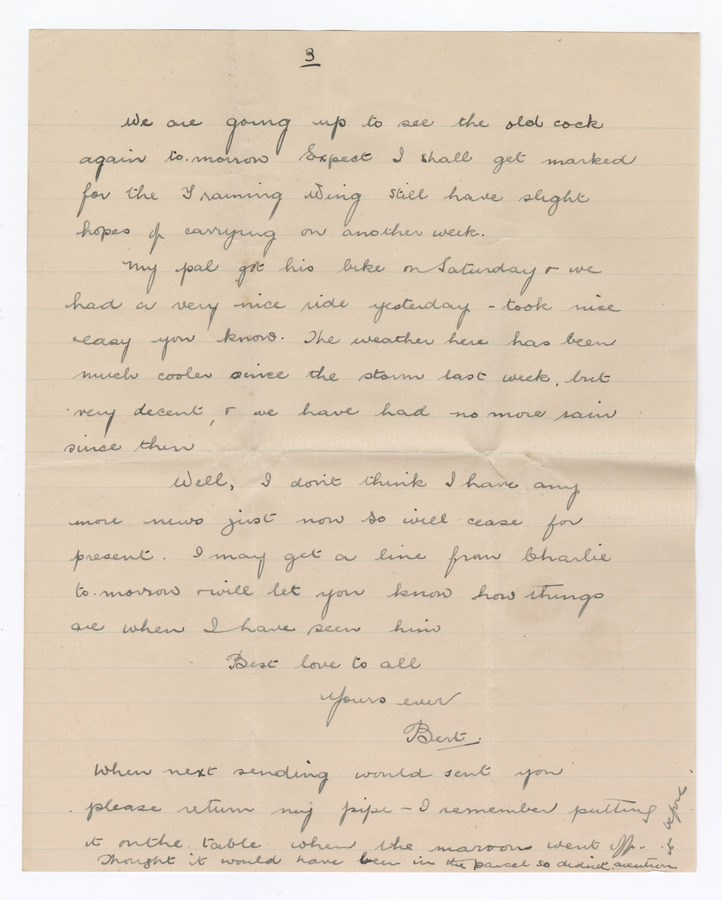 3
We are going up to see the old cock
again to.morrow Expect I shall get marked
for the Training Wing Still have slight
hopes of carrying on another week.
My pal got his bike on Saturday & we
had a very nice ride yesterday - took nice
easy you know. The weather here has been
much cooler since the storm last week, but
very decent, & we have had no more rain
since then
Well, I don't think I have any
more news just now so will cease for
present. I may get a line from Charlie
to.morrow & will let you know how things
are when I have seen him
Best love to all
Yours ever
Bert.
When next sending would sent you
please return my pipe - I remember putting
it on the table when the maroon went off.
Thought it would have been in the parcel so didn't mention
it before.